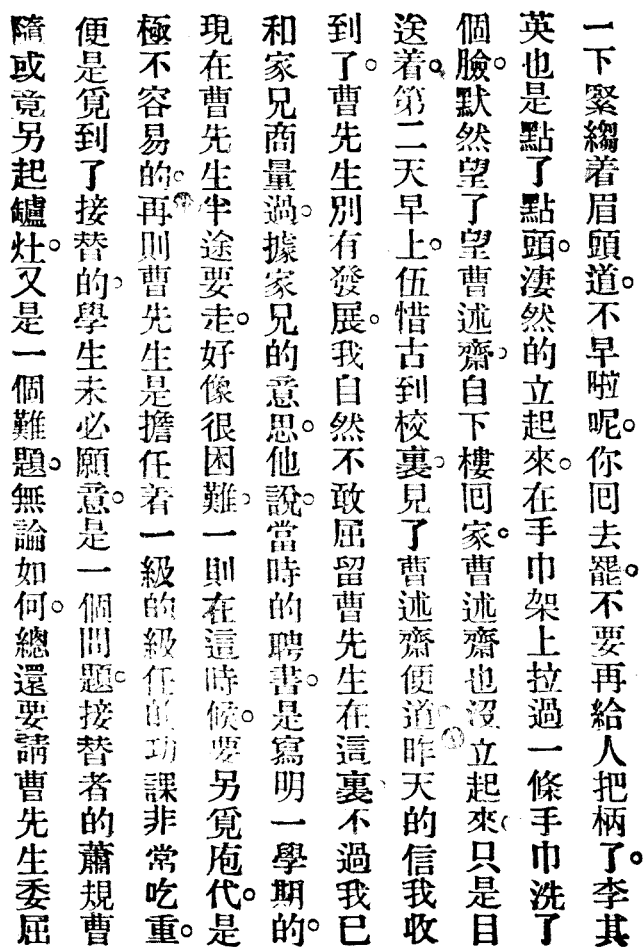 一下緊縐着眉頭道。不早啦呢。你囘去罷。不要再給人把柄了。李其
英也是點了點頭。淒然的立起來。在手巾架上拉過一條手巾洗了
個臉。默然望了望曹述齋、自下樓囘家。曹述齋也沒立起來。只是目
送着。第二天早上。伍惜古到校裏。見了曹述齋便道、昨天的信我收
到了。曹先生別有發展。我自然不敢屈留曹先生在這裏、不過我已
和家兄商量過。據家兄的意思。他說。當時的聘書。是寫明一學期的。
現在曹先生半途要走。好像很困難、一則在這時候。要另覓庖代。是
極不容易的。再則曹先生是擔任着一級的級任的功課非常吃重。
便是覓到了接替的、學生未必願意。是一個問題。接替者的蕭規曹
隨或竟另起罏灶。又是一個難題。無論如何。總還要請曹先生委屈